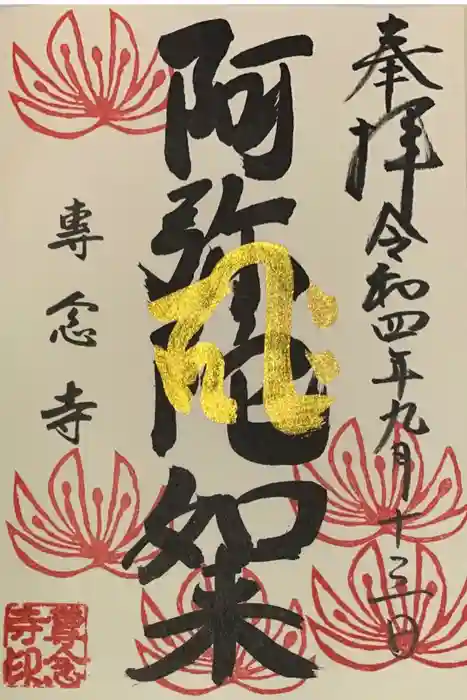 奉拝
令和四年九月十三日
阿弥陀如来
専念寺
専念寺印